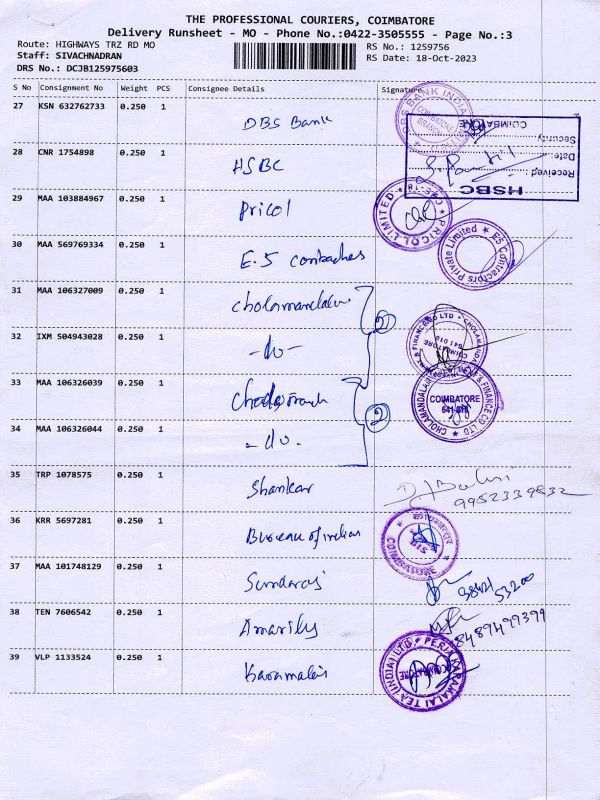 THE PROFESSIONAL COURIERS, COIMBATORE
Delivery Runsheet - MO - Phone No.:0422-3505555 - Page No.:3
Route: HIGHWAYS TRZ RD MO
Staff: SIVACHNADRAN
DRS No.: DCJB125975603
RS No.: 1259756
RS Date: 18-Oct-2023
S No Consignment No Weight PCS Consignee Details Signature
27 KSN 632762733 0.250 1 DBS Bank
28 CNR 1754898 0.250 1 HSBC
Received :
Date:
Security
COIMBATORE
HSBC
29 MAA 103884967 0.250 1 Pricol
PRICOL LIMITED
30 MAA 569769334 0.250 1 E.5
E5 Contractors Private Limited
31 MAA 106327009 0.250 1
32 IXM 504943028 0.250 1 -do-
COIMBATORE
641 018
33 MAA 106326039 0.250 1
2
CHOLAMANDALAM & FINANCE CO LTD
COIMBATORE
34 MAA 106326044 0.250 1 -do-
35 TRP 1078575 0.250 1 Shankar
9952339832
36 KRR 5697281 0.250 1 Bureau of indian
BIS
COIMBATORE
37 MAA 101748129 0.250 1 Sundaraj
38 TEN 7606542 0.250 1
8489499399
39 VLP 1133524 0.250 1 Karamalai
PERIA KARAMALAI TEA (INDIA) LTD